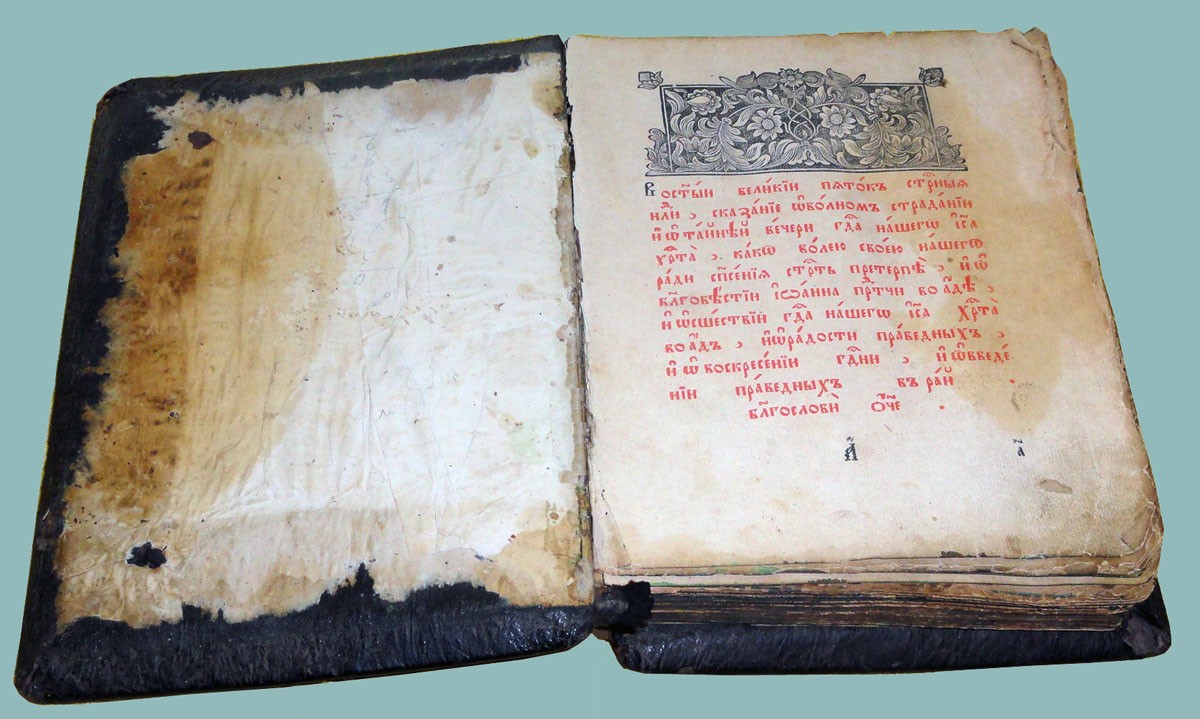 Во ст҃ыи великїи пѧтокъ стрⷭ҇ныѧ
нлⷣи , сказанїе ѡ҆во́лномъ страда́нїи
и҆ ѡ҆ та́инѣй ве́чери гдⷭ҇а на́шегѡ і҆с҃а
хрⷭ҇та̀ , ка́кѡ во́лею свое́ю на́шегѡ
ра́ди сп҃се́нїѧ стрⷭ҇ть претерпѣ̀ , и҆ ѡ҆
бл҃говѣ́стїи і҆ѡа́нна прⷣтчи во а҆́дѣ ,
и҆ ѡ҆сше́ствїи гдⷭ҇а на́шегѡ і҆с҃а хрⷭ҇та̀
во а҆́дъ , и҆ѡ҆ра́дости пра́ведныхъ ,
и҆ ѡ҆ воскресе́нїи гдⷭ҇ни , и҆ ѡ҆введе́
нїи пра́ведныхъ въ ра́й .
бл҃гословѝ ѻ҆́ч҃е .
а҃ а҃